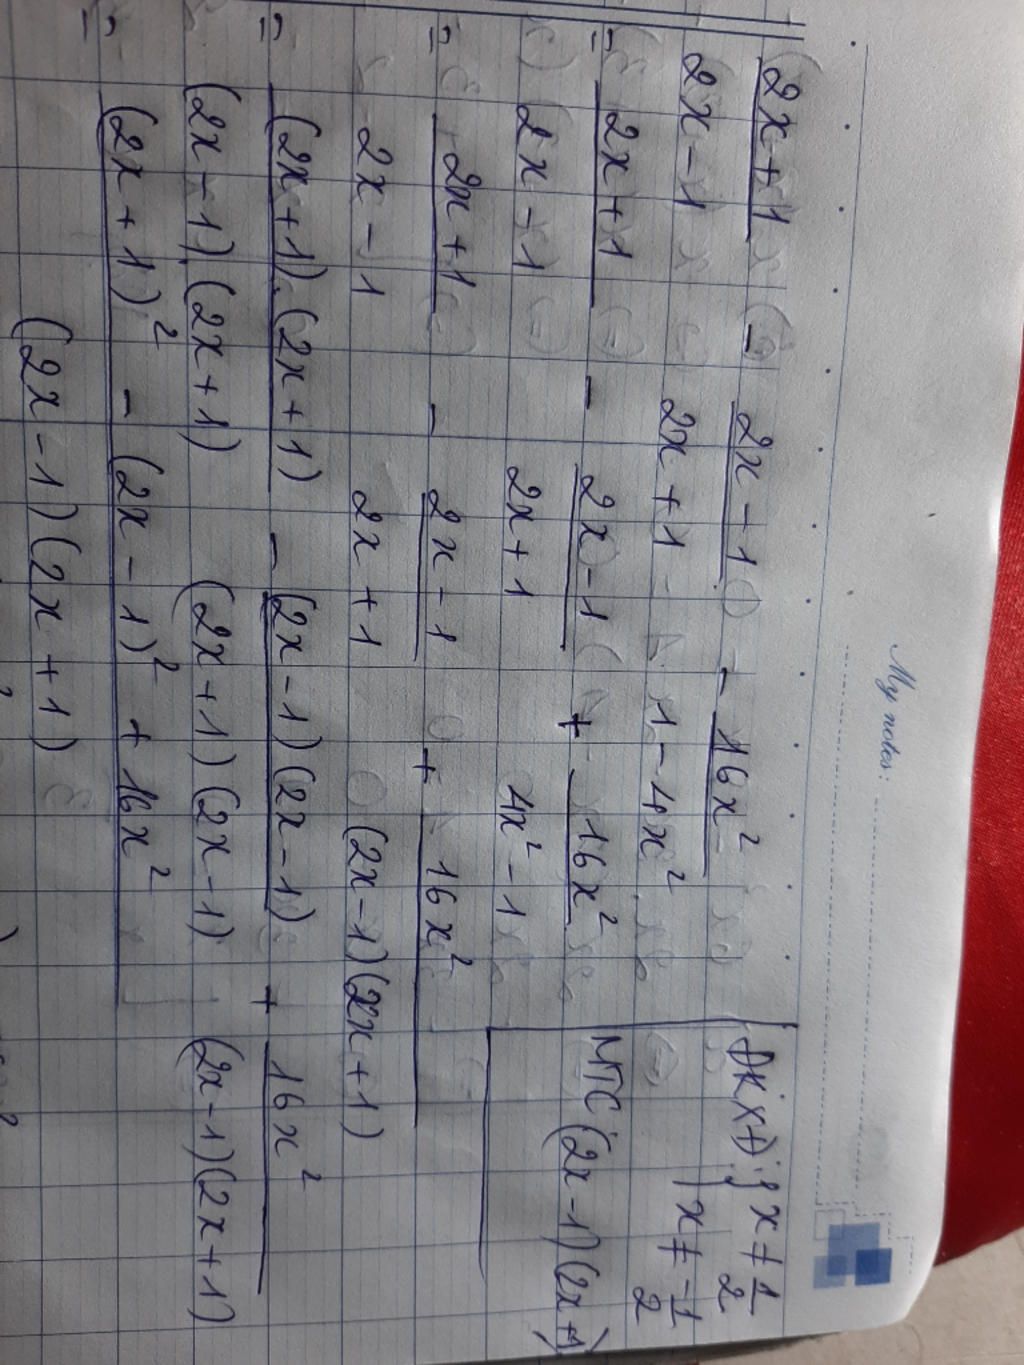 My notes:
(2x+1)/(2x-1) - (2x-1)/(2x+1) - 16x²/(1-4x²)
ĐKXĐ: { x ≠ 1/2
x ≠ -1/2
= (2x+1)/(2x-1) - (2x-1)/(2x+1) + 16x²/(4x²-1)
MTC: (2x-1)(2x+1)
= (2x+1)/(2x-1) - (2x-1)/(2x+1) + 16x²/((2x-1)(2x+1))
= (2x+1).(2x+1)/((2x-1)(2x+1)) - (2x-1)(2x-1)/((2x+1)(2x-1)) + 16x²/((2x-1)(2x+1))
= ((2x+1)² - (2x-1)² + 16x²)/((2x-1)(2x+1))